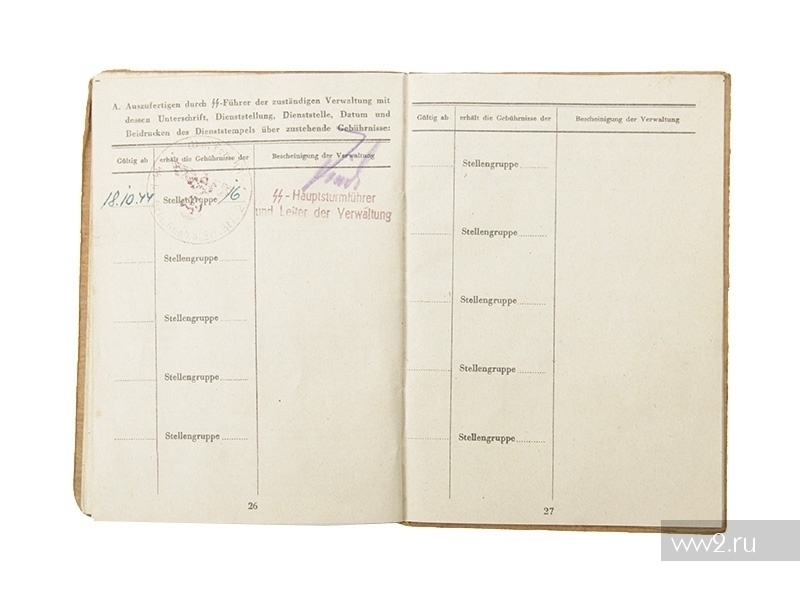 A. Auszufertigen durch ᛋᛋ-Führer der zuständigen Verwaltung mit
dessen Unterschrift, Dienststellung, Dienststelle, Datum und
Beidrucken des Dienststempels über zustehende Gebührnisse:
Gültig ab erhält die Gebührnisse der Bescheinigung der Verwaltung
18.10.44 Stellengruppe 16
ᛋᛋ-Hauptsturmführer
und Leiter der Verwaltung
Stellengruppe
Stellengruppe
Stellengruppe
Stellengruppe
26
Gültig ab erhält die Gebührnisse der Bescheinigung der Verwaltung
Stellengruppe
Stellengruppe
Stellengruppe
Stellengruppe
Stellengruppe
27
ww2.ru